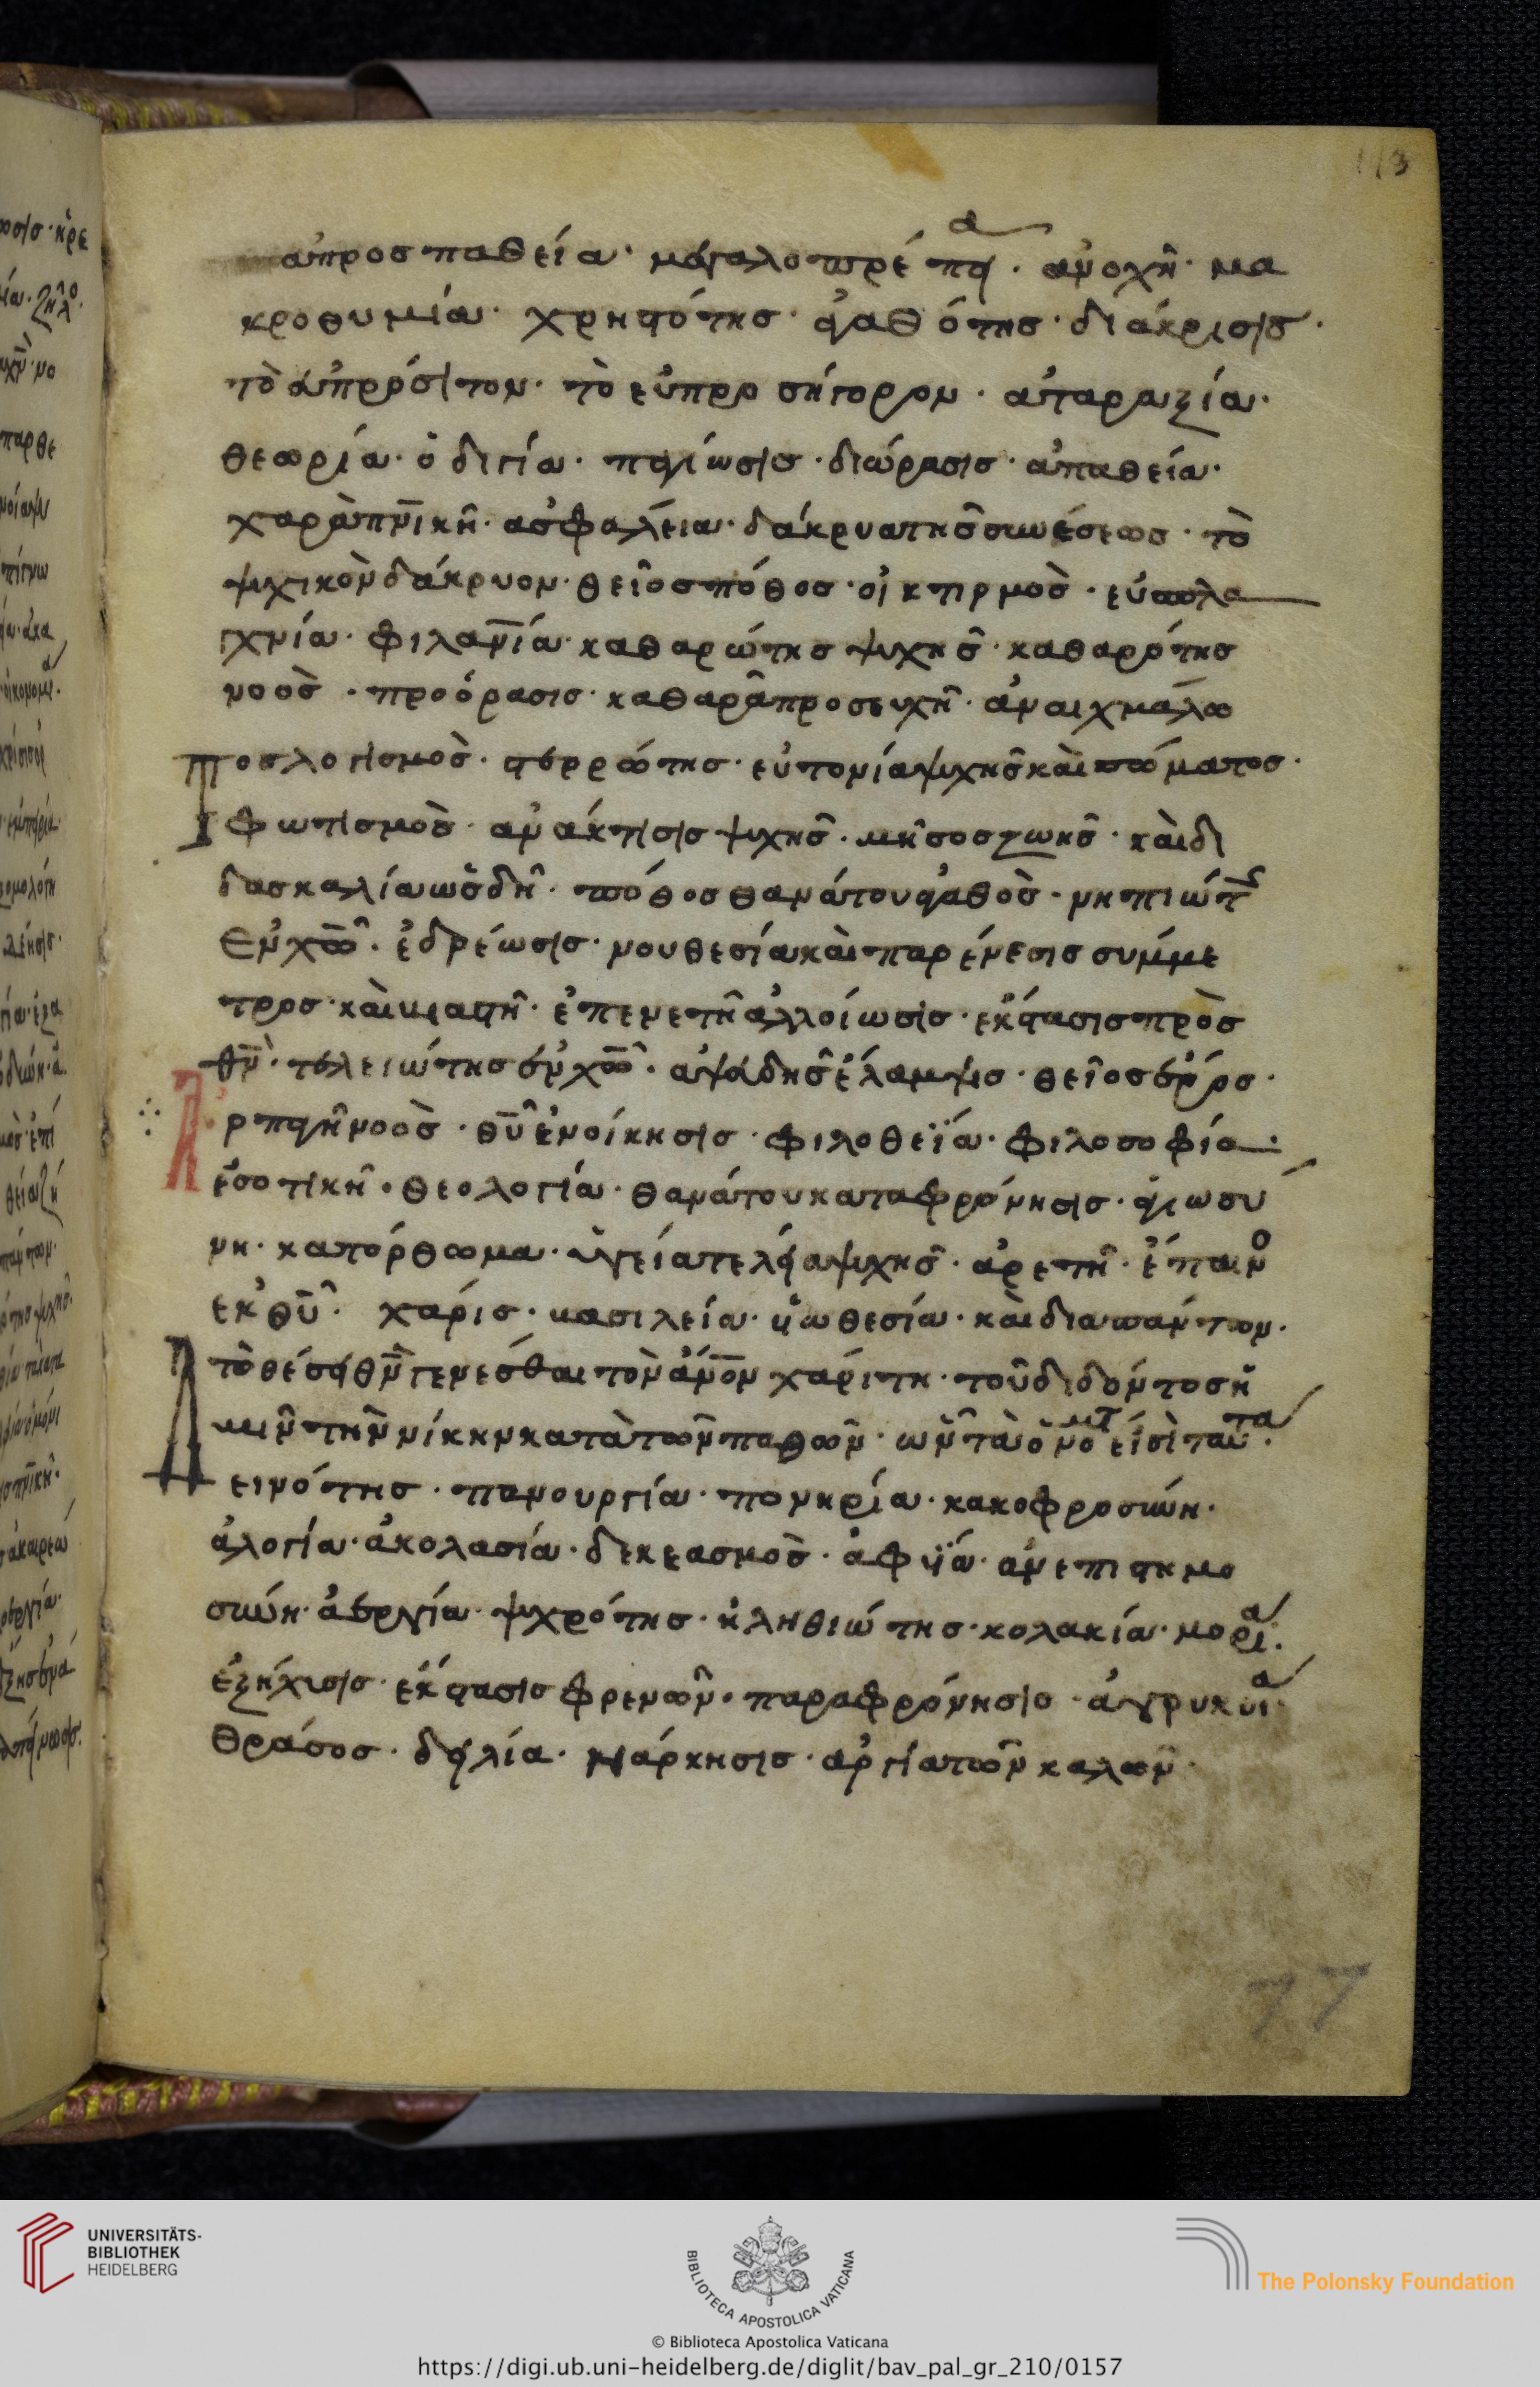 113
ἀπροσπαθεία· μεγαλοπρέπει α· ἀνοχὴ· μα
κροθυμία· χρηστότης· ἀγαθότης· διάκρισις·
τὸ ἀπρόσιτον· τὸ εὐπροσήγορον· ἀταραξία·
θεωρία· ὁδιγία· διώρασις· ἀπαθεία·
χαρὰ πνικῆ· ἀσφαλέια· δάκρυα τῆς συνέσεως· τὸ
ψυχικὸν δάκρυον· θεῖος πόθος· οἰκτιρμὸς· εὐσπλα
χνία· φιλανία· καθαρώτης ψυχῆς· καθαρότης
νοὸς· προόρασις· καθαρὰ προσευχῆ· ἀναιχμάλω
τος λογισμὸς· στερρώτης· εὐτονία ψυχῆς καὶ σώματος·
φωτισμὸς· ἀνάκτισις ψυχῆς· μῆσος ζωῆς· καὶ δι
δασκαλία ὡς δῆ· πόθος θανάτου ἀγαθὸς· νηπιώτ
ἐν χω· ἑδρέωσις· νουθεσία καὶ παρένεσις σύμμε
τρος· καὶ βιαστὴ· ἐπενετὴ ἀλλοίωσις· ἔκστασις πρὸς
θν· τελειώτης ἐν χω· ἀψαδὴς ἔλαμψις· θεῖος ἔρος·
ἁρπαγὴ νοὸς· θυ ἐνοίκησις· φιλοθεΐα· φιλοσοφία·
ἐσοτικῆ· θεολογία· θανάτου καταφρόνησις· ἁγιωσύ
νη· κατόρθωμα· ὑγεία τελεία ψυχῆς· ἀρετὴ· ἔπαινο
ἐκ θυ· χάρις· βασιλεία· υἱωθεσία· καὶ διαπάντων·
τὸ θέσει θν γενέσθαι τὸν ἀνον χάριτη· τοῦ διδόντος ἡ
μῖν τὴν νίκην κατὰ τῶν παθῶν· ὧν τὰ ὀνοματ εἰσὶ ταυτα·
Δεινότης· πανουργία· πονηρία· κακοφροσύνη·
ἀλογία· ἀκολασία· δεκεασμὸς· ἀφυΐα· ἀνεπιστημο
σύνη· ἀεργία· ψυχρότης· ἠληθιώτης· κολακία· μορία·
ἐξήχισις· ἔκστασις φρενῶν· παραφρόνησις· ἀγρυκία·
θράσος· δειλία· νάρκησις· ἀργία τῶν καλῶν·
77
UNIVERSITÄTS-
BIBLIOTHEK
HEIDELBERG
BIBLIOTECA APOSTOLICA VATICANA
The Polonsky Foundation
© Biblioteca Apostolica Vaticana
https://digi.ub.uni-heidelberg.de/diglit/bav_pal_gr_210/0157